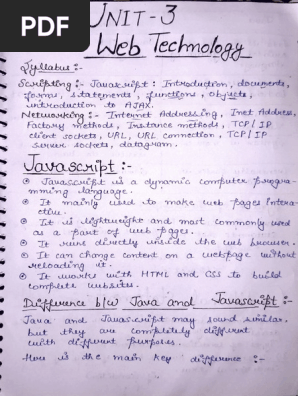 PDF
UNIT-3
Web Technology
Syllabus :-
Scripting :- Javascript : Introduction, documents,
forms, statements, functions, objects,
introduction to AJAX.
Networking :- Internet Addressing, Inet Address,
Factory methods, Instance methods, TCP/IP
client sockets, URL, URL connection, TCP/IP
server sockets, datagram.
Javascript :-
Javascript is a dynamic computer progra-
mming language.
It mainly used to make web pages intera-
ctive.
It is lightweight and most commonly used
as a part of web pages.
It runs directly inside the web browser.
It can change content on a webpage without
reloading it.
It works with HTML and CSS to build
complete websites.
Difference b/w Java and Javascript :-
Java and Javascript may sound similar
but they are completely different
with different purposes.
Here is the main key difference :-